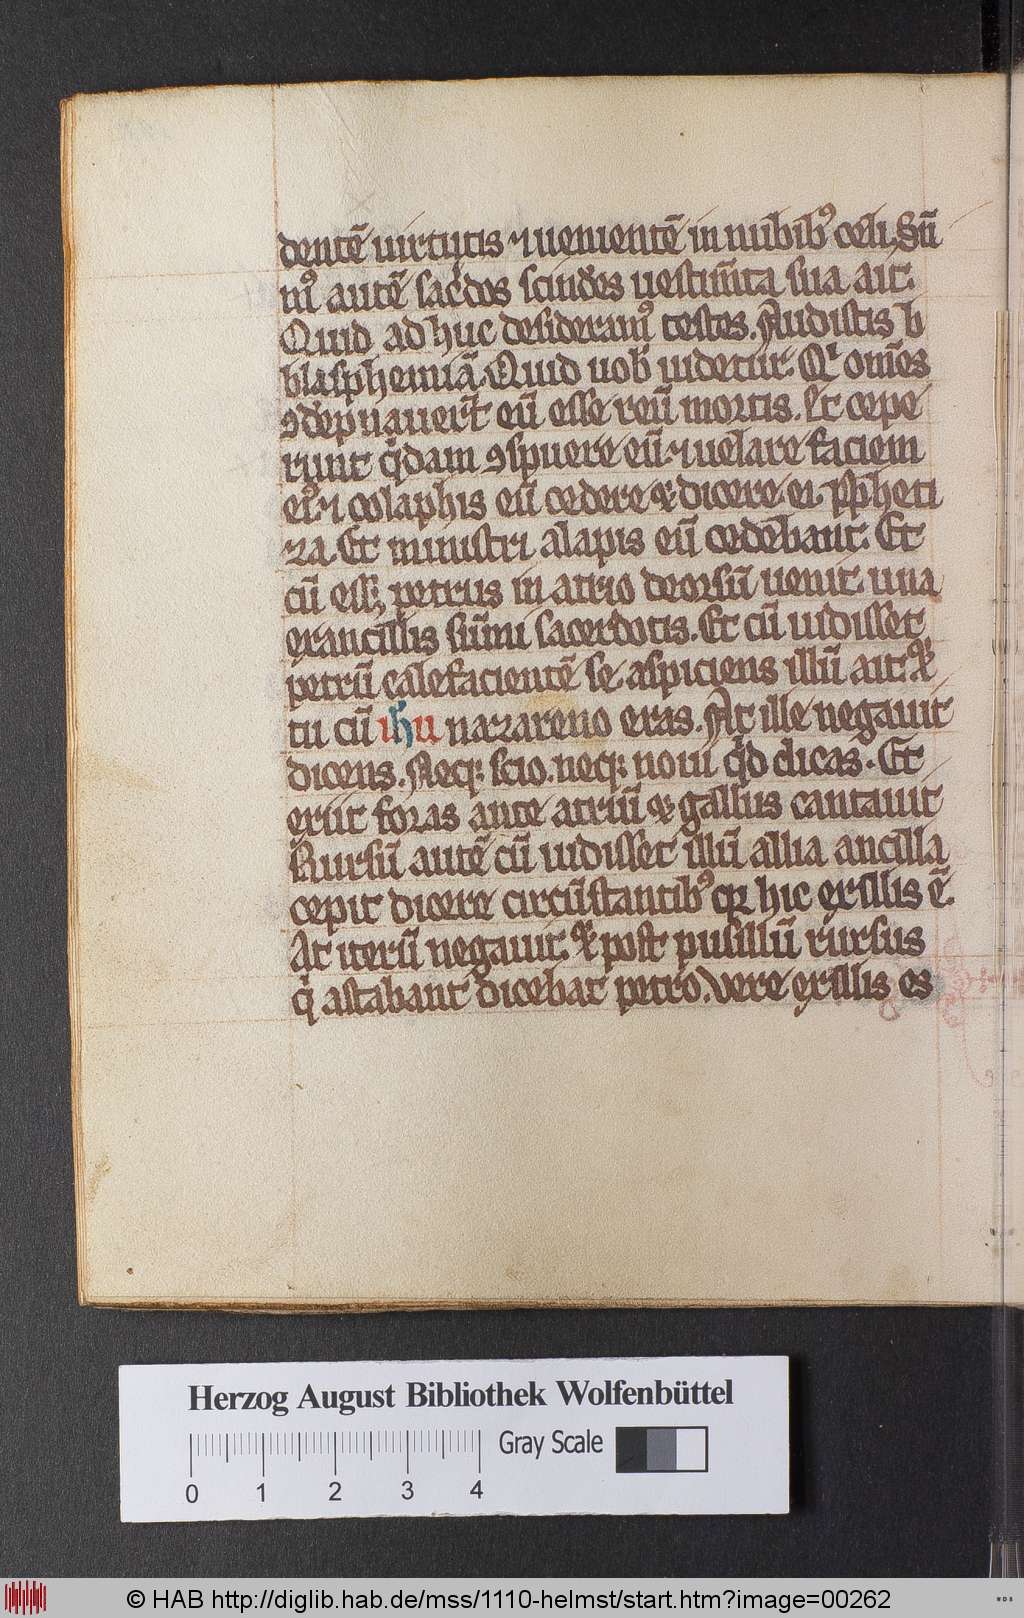 dentē uirtutis ⁊ uenientē in nubibꝰ celi. Sū
mꝰ autē sac̕dos scind̕es uestim̄ta sua ait.
Quid ad huc desideramꝰ testes. Audistis b
blasphemiā. Quid uob̕ uidetur. Q̕ om̄es
ꝯde͂pnauer̄t eū esse reū mortis. Et cepe
runt q̇dam ꝯspuere eū. ⁊ uelare faciem
eiꝰ. ⁊ colaphis eū cedere ⁊ dicere. ei. ꝓpheti
za. Et ministri alapis eū cedēbant. Et
cū eſſꝫ petrus in atrio deorsū uenit. una
ex ancillis sūmi sacerdotis. Et cū uidisset
petrū calefacientē se aspiciens illū ait. ⁊
tu cū ihu nazareno eras. At ille negauit
dicens. Neqꝫ scio. neqꝫ noui q̇d dicas. Et
exiit foras ante atriū ⁊ gallus cantauit
Rursū autē cū uidisset illū allia ancilla
cepit dicere circūstantibꝰ qꝛ hic ex illis ē.
At iterū negauit. ⁊ post pusillū rursus
q̇ astabant dicebat petro. Vere ex illis es
Herzog August Bibliothek Wolfenbüttel
0 1 2 3 4 Gray Scale
© HAB http://diglib.hab.de/mss/1110-helmst/start.htm?image=00262